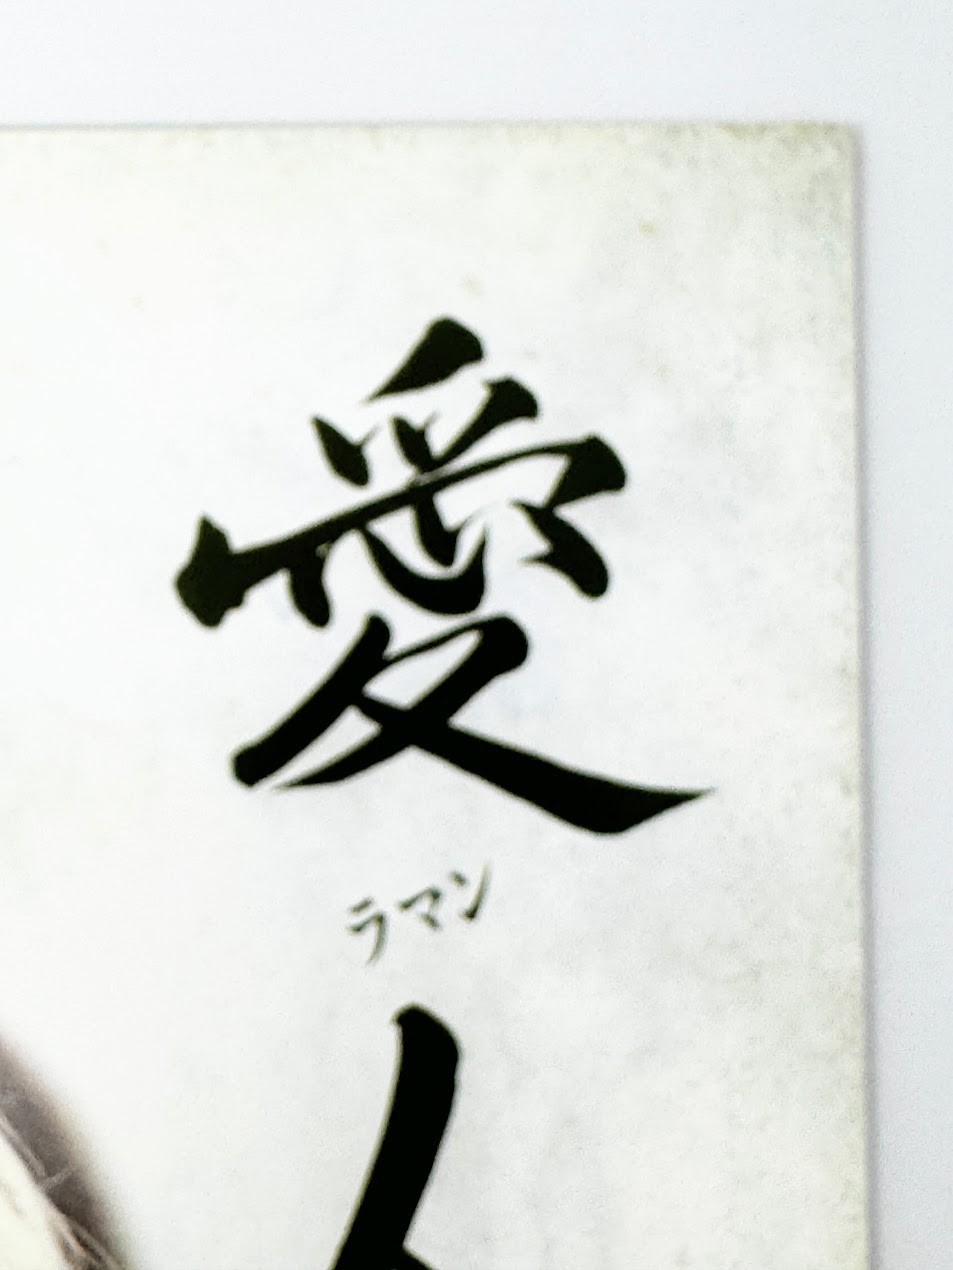 愛
ラマン
人